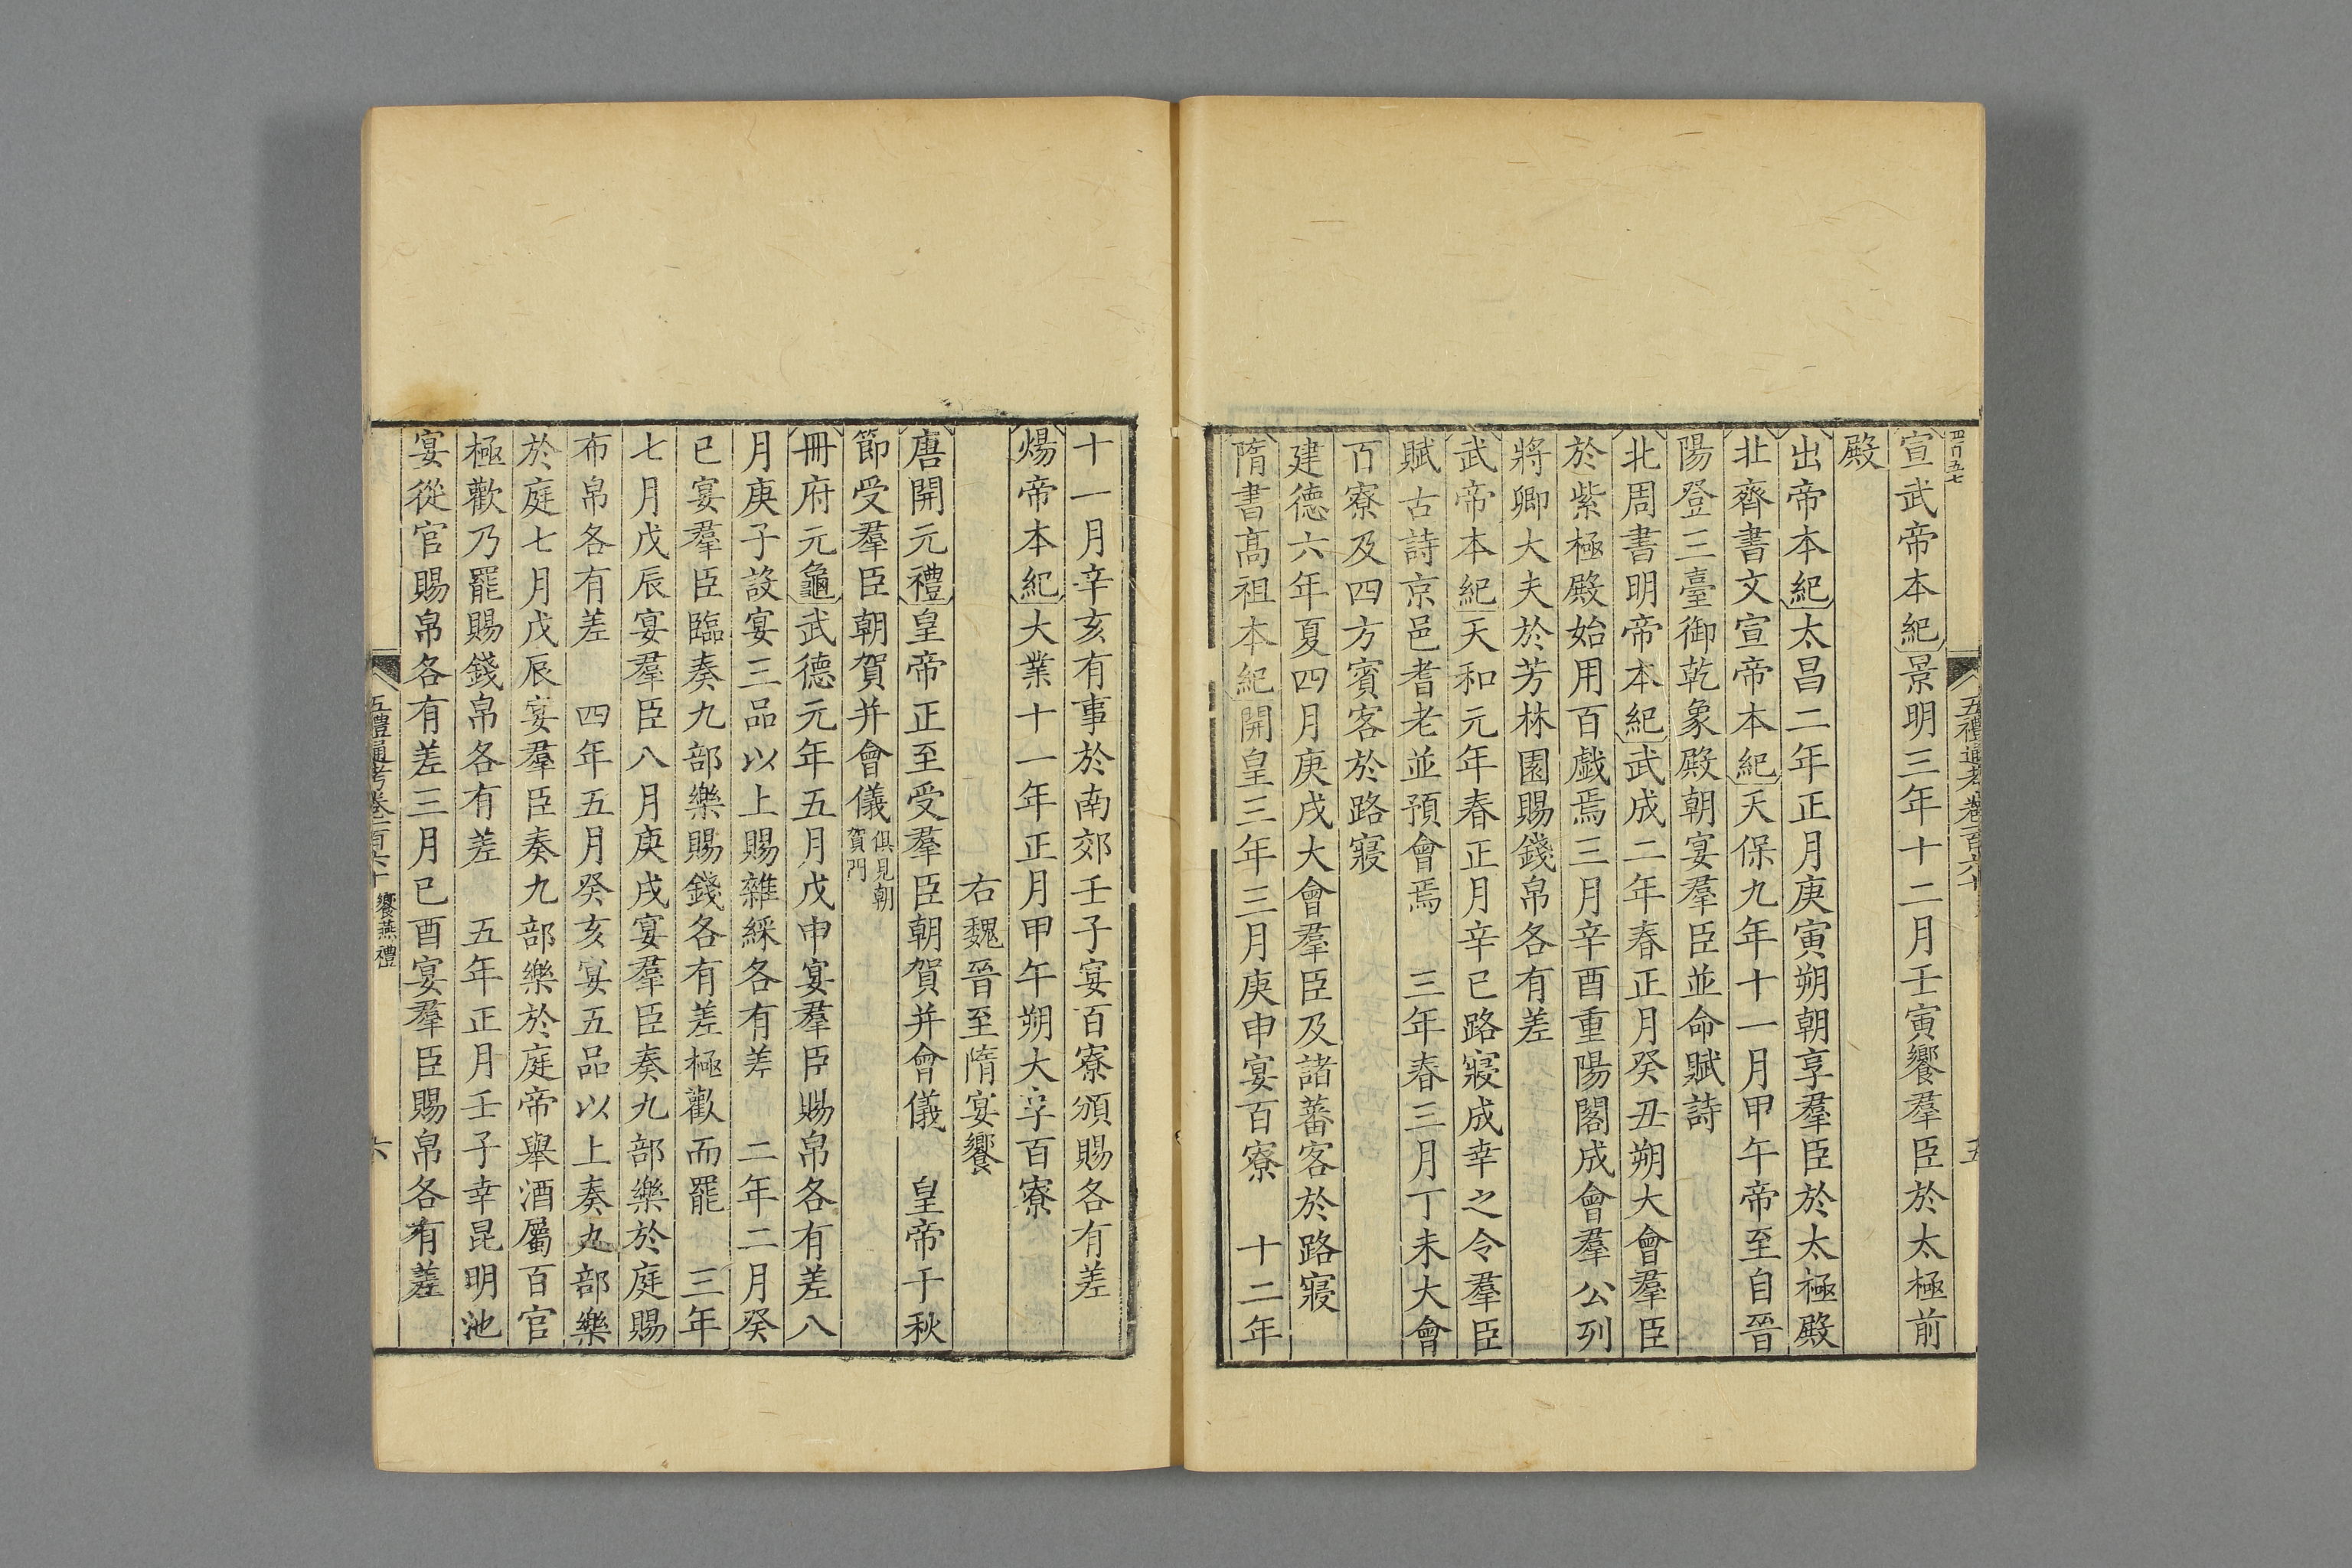 四百五七
五禮通考卷一百六十
五
宣武帝本紀景明三年十二月壬寅饗羣臣於太極前
殿
出帝本紀太昌二年正月庚寅朔朝享羣臣於太極殿
北齊書文宣帝本紀天保九年十一月甲午帝至自晉
陽登三臺御乾象殿朝宴羣臣並命賦詩
北周書明帝本紀武成二年春正月癸丑朔大會羣臣
於紫極殿始用百戲焉三月辛酉重陽閣成會羣公列
將卿大夫於芳林園賜錢帛各有差
武帝本紀天和元年春正月辛巳路寢成幸之令羣臣
賦古詩京邑耆老並預會焉　三年春三月丁未大會
百寮及四方賓客於路寢
建德六年夏四月庚戌大會羣臣及諸蕃客於路寢
隋書高祖本紀開皇三年三月庚申宴百寮　十二年
十一月辛亥有事於南郊壬子宴百寮頒賜各有差
煬帝本紀大業十一年正月甲午朔大宴百寮
右魏晉至隋宴饗
唐開元禮皇帝正至受羣臣朝賀并會儀　皇帝千秋
節受羣臣朝賀并會儀俱見朝賀門
冊府元龜武德元年五月戊申宴羣臣賜帛各有差八
月庚子設宴三品以上賜雜綵各有差　二年二月癸
巳宴羣臣臨奏九部樂賜錢各有差極歡而罷　三年
七月戊辰宴羣臣八月庚戌宴羣臣奏九部樂於庭賜
布帛各有差　四年五月癸亥宴五品以上奏九部樂
於庭七月戊辰宴羣臣奏九部樂於庭帝舉酒屬百官
極歡乃罷賜錢帛各有差　五年正月壬子幸昆明池
宴從官賜帛各有差三月已酉宴羣臣賜帛各有差
五禮通考卷一百六十 饗燕禮
六